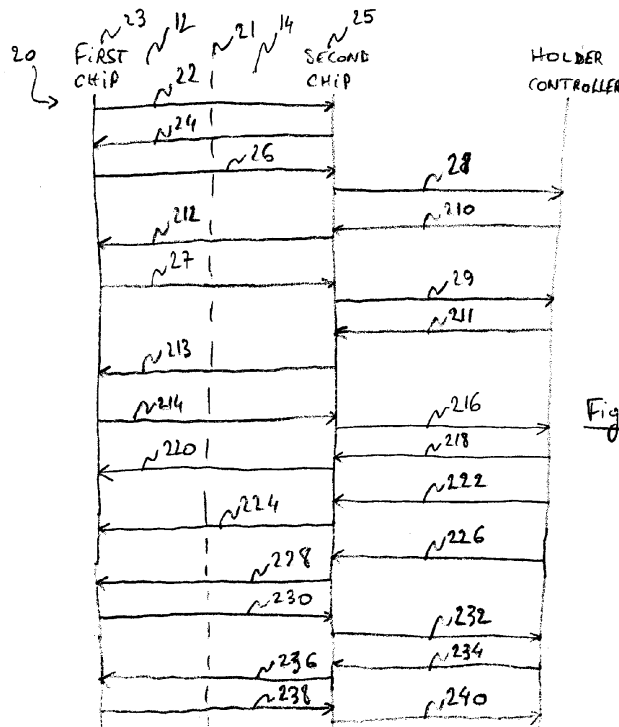 23 12 21 14 25
20 FIRST CHIP SECOND CHIP HOLDER CONTROLLER
22
24
26
28
212 210
27
29
211
213
214 216
Fig
220 218
222
224
226
228
230
232
236 234
238 240